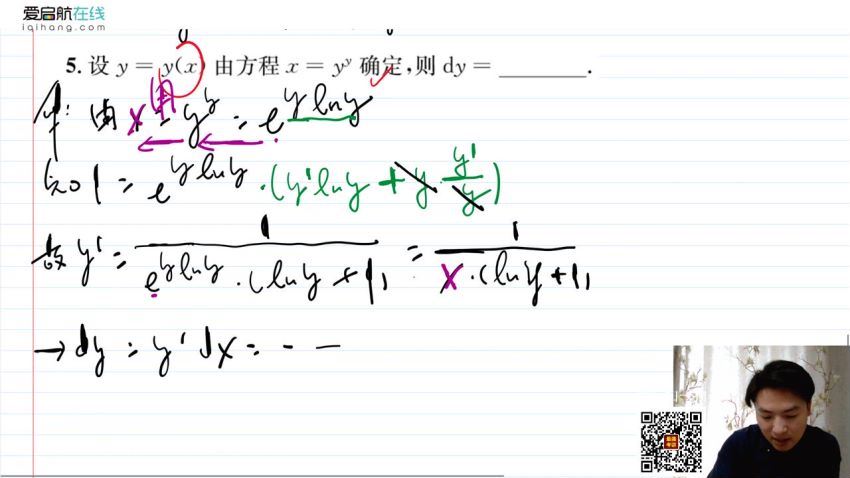 爱启航在线
iqihang.com
5. 设 y = y(x) 由方程 x = y^y 确定,则 dy = ________.
解: 由 x = y^y = e^{y ln y}
知 1 = e^{y ln y} · (y' ln y + y · y'/y)
故 y' = 1/(e^{y ln y} · (ln y + 1)) = 1/(x · (ln y + 1))
→ dy = y' dx = - -